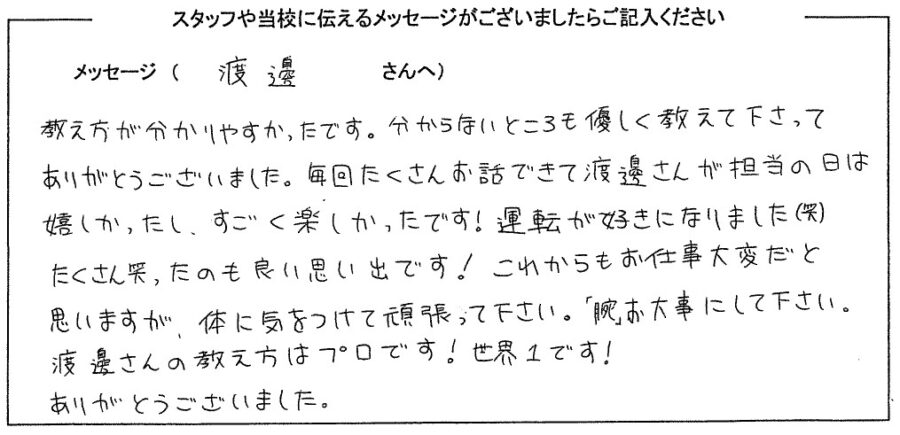 スタッフや当校に伝えるメッセージがございましたらご記入ください
メッセージ ( 渡邊 さんへ)
教え方が分かりやすかったです。分からないところも優しく教えて下さって
ありがとうございました。毎回たくさんお話できて渡邊さんが担当の日は
嬉しかったし、すごく楽しかったです!運転が好きになりました(笑)
たくさん笑ったのも良い思い出です!これからもお仕事大変だと
思いますが、体に気をつけて頑張って下さい。「腕」お大事にして下さい。
渡邊さんの教え方はプロです!世界1です!
ありがとうございました。